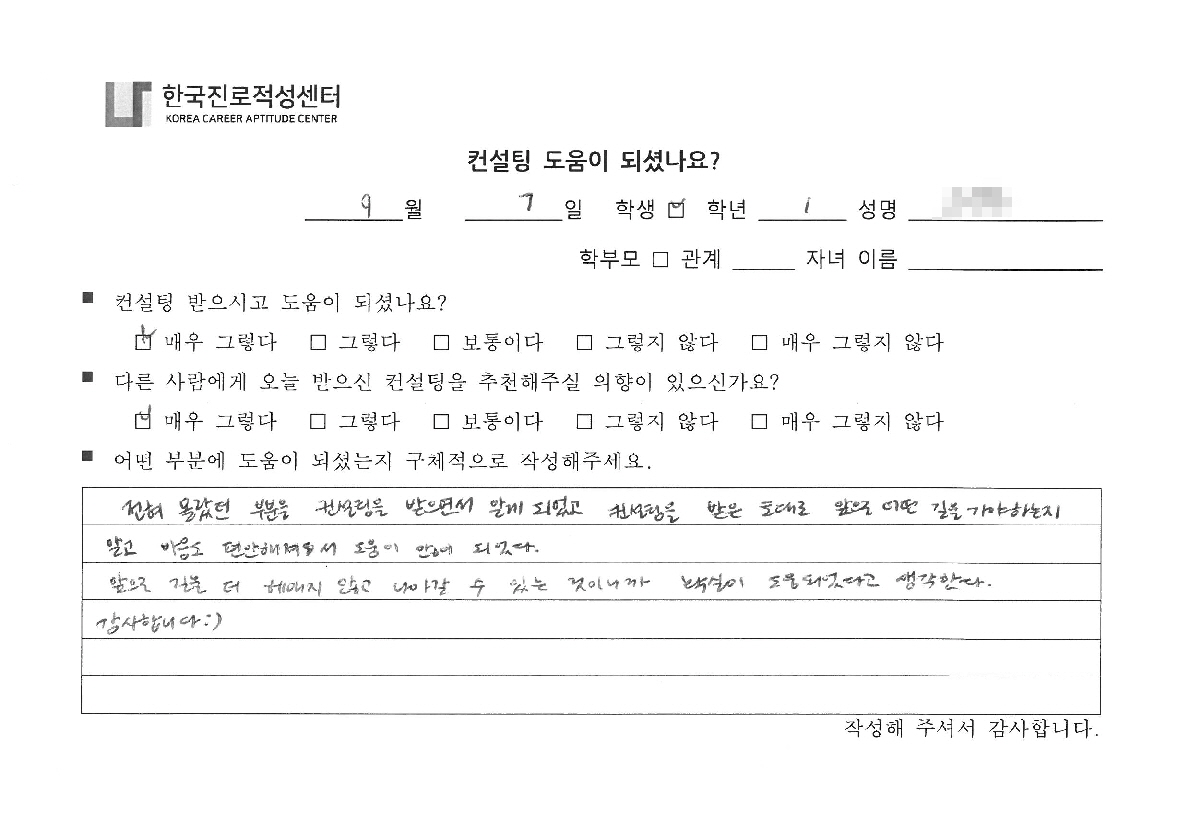 한국진로적성센터
KOREA CAREER APTITUDE CENTER
컨설팅 도움이 되셨나요?
9 월 7 일 학생 ☑ 학년 1 성명
학부모 □ 관계 자녀 이름
■ 컨설팅 받으시고 도움이 되셨나요?
☑ 매우 그렇다 □ 그렇다 □ 보통이다 □ 그렇지 않다 □ 매우 그렇지 않다
■ 다른 사람에게 오늘 받으신 컨설팅을 추천해주실 의향이 있으신가요?
☑ 매우 그렇다 □ 그렇다 □ 보통이다 □ 그렇지 않다 □ 매우 그렇지 않다
■ 어떤 부분에 도움이 되셨는지 구체적으로 작성해주세요.
전혀 몰랐던 부분을 컨설팅을 받으면서 알게 되었고 컨설팅을 받은 토대로 앞으로 어떤 길을 가야하는지
알고 마음도 편안해져서 도움이 되었다.
앞으로 길을 더 헤매지 않고 나아갈 수 있는 것이니까 확실히 도움되었다고 생각한다.
감사합니다:)
작성해 주셔서 감사합니다.